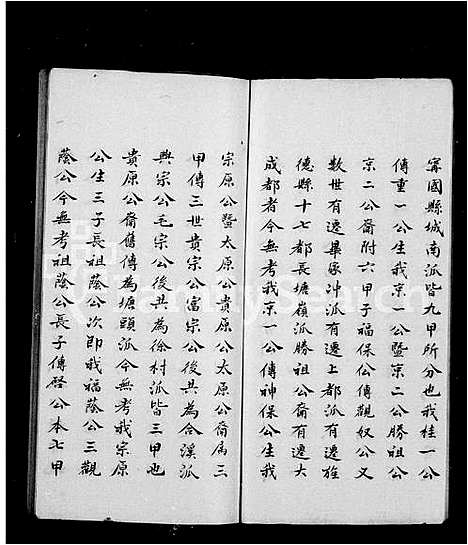 甯國縣城南派皆九甲所分也我桂一公
傳重一公生我京一公暨京二公勝祖公
京二公裔附六甲子福保公傳觀奴公又
數世有遷畢家沖派有遷上都派有遷旌
德縣十七都長塘嶺派勝祖公裔有遷大
成都者今無考我京一公傳神保公生我
宗原公暨太原公貴原公太原公裔屬三
甲傳三世貴宗公富宗公後共為合溪派
興宗公毛宗公後共為徐村派皆三甲也
貴原公裔舊傳為塘頭派今無考我宗原
公生三子長祖蔭公次即我福蔭公三觀
蔭公今無考祖蔭公長子傳啓公本七甲
FamilySearch